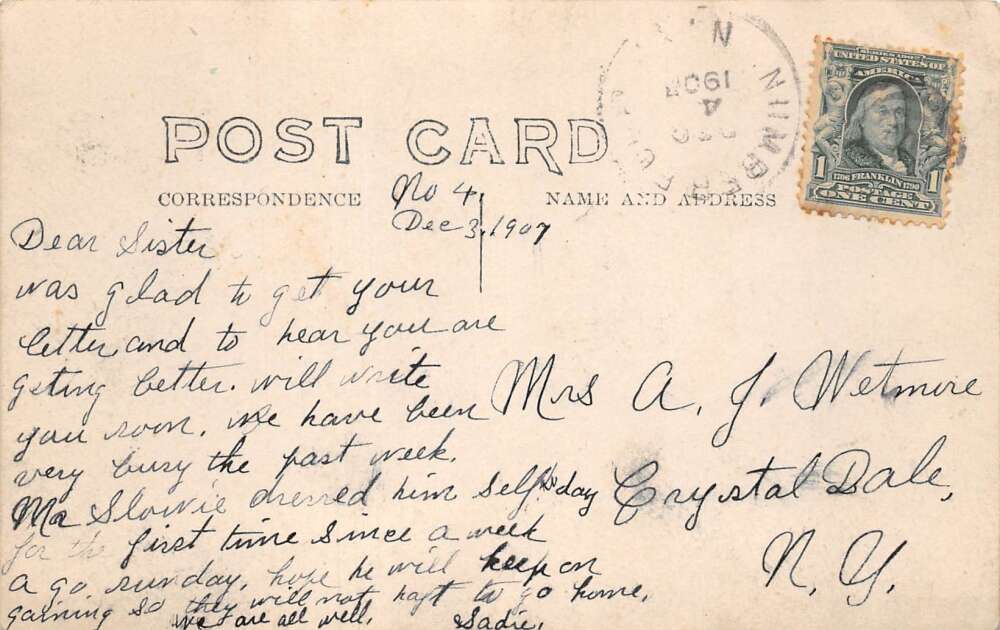 POST CARD
CORRESPONDENCE
NAME AND ADDRESS
No 4,
Dec 3, 1907
Dear Sister
was glad to get your
letter and to hear you are
geting better. will write
you soon. We have been
very busy the past week.
Mr dressed him self to day
for the first time since a week
a go sunday, hope he will keep on
gaining so they will not haft to go home,
we are all well, Sadie,
Mrs A. J. Wetmore
Crystal Dale,
N. Y.
DEC
4
1907
N.Y.
SERIES 1902
UNITED STATES OF
AMERICA
1706 FRANKLIN 1790
POSTAGE
1 ONE CENT 1